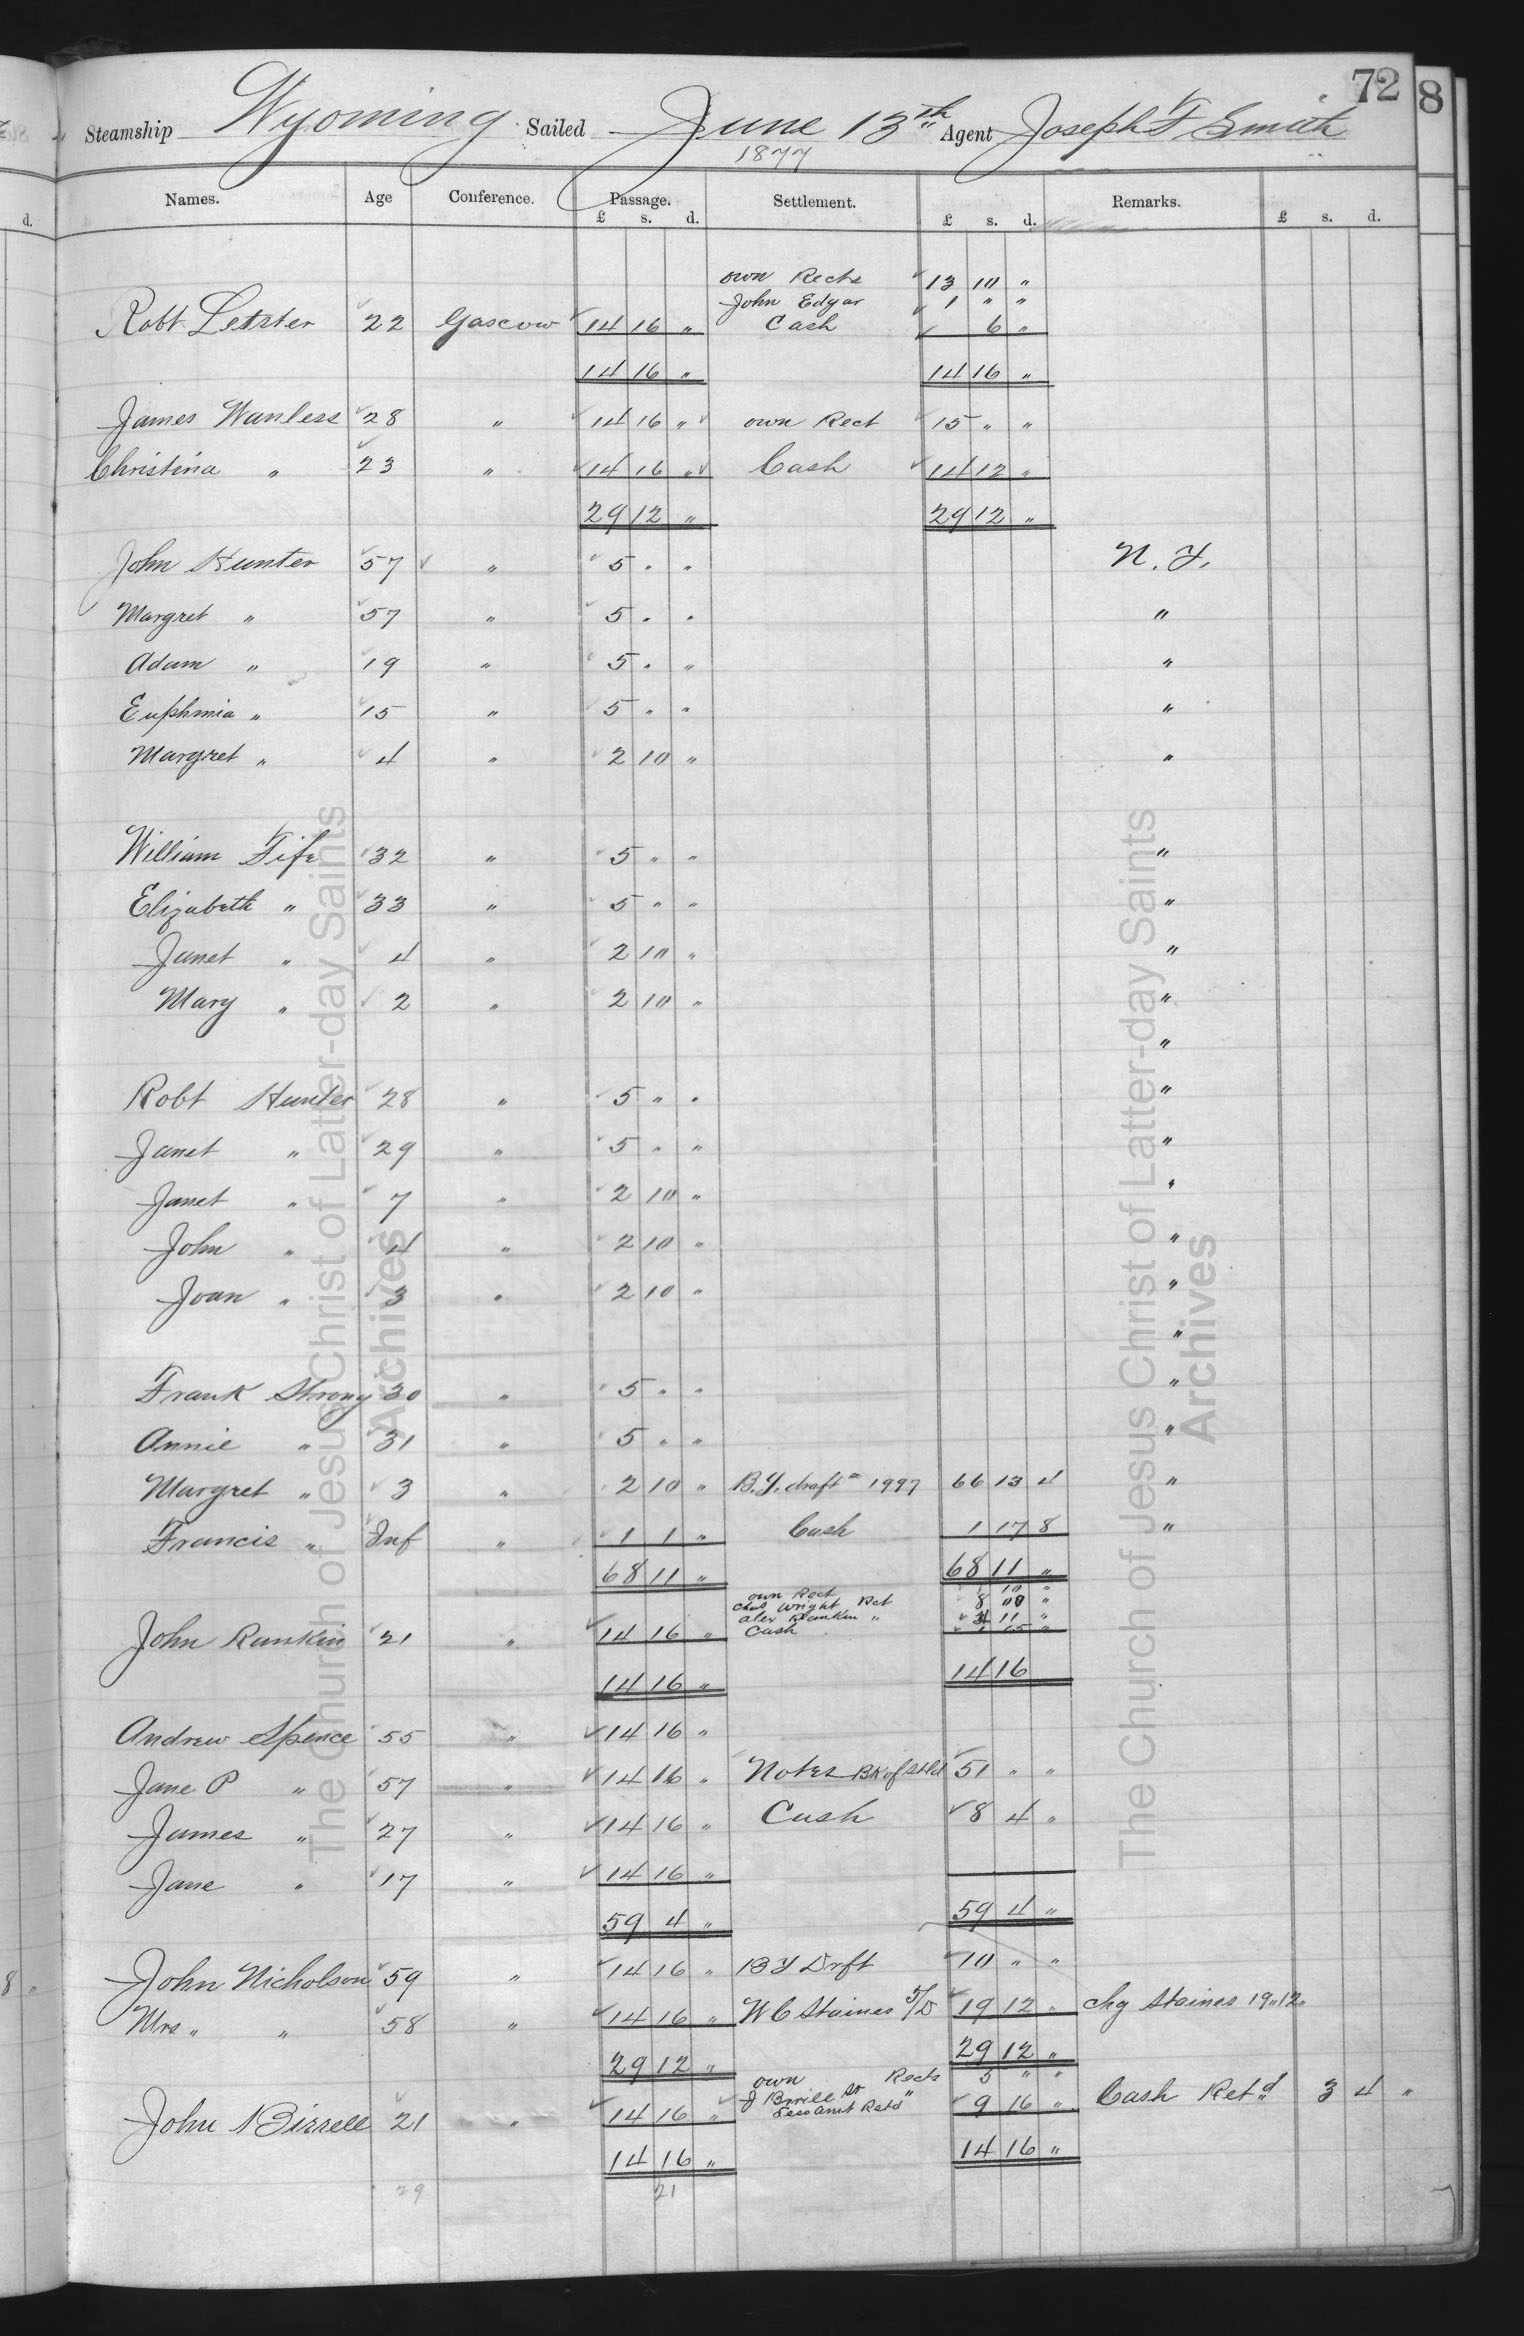 72
8
Steamship Wyoming Sailed June 13th Agent Joseph F Smith
1877
Names. Age Conference. Passage. Settlement. Remarks.
£ s. d. £ s. d. £ s. d.
d.
own Rects 13 10 "
John Edgar 1 " "
Robt 22 Gascow 14 16 " Cash 6 "
14 16 " 14 16 "
James Wanless 28 " 14 16 " own Rect 15 " "
Christina " 23 " 14 16 " Cash 14 12 "
29 12 " 29 12 "
John Hunter 57 " 5 " " N. Y.
Margret " 57 " 5 " " "
Adam " 19 " 5 " " "
Euphmia " 15 " 5 " " "
Margret " 4 " 2 10 " "
William Fife 32 " 5 " " "
Elizabeth " 33 " 5 " " "
Janet " 4 " 2 10 " "
Mary " 2 " 2 10 " "
"
Robt Hunter 28 " 5 " " "
Janet " 29 " 5 " " "
Janet " 7 " 2 10 " "
John " 4 " 2 10 " "
Joan " 3 " 2 10 " "
"
Frank Strong 30 " 5 " " "
Annie " 31 " 5 " " "
Margret " 3 " 2 10 " B.Y. draft 1997 66 13 4 "
Francis " Inf " 1 1 " Cash 1 17 8 "
68 11 " 68 11 "
own Rect 10 "
Chas Wright Rct 8 "
Alex Rankin " 11 "
John Rankin 21 " 14 16 " Cash 15 "
14 16 " 14 16
Andrew Spence 55 " 14 16 "
Jane P " 57 " 14 16 " Notes Bk of Sctld 51 " "
James " 27 " 14 16 " Cash 8 4 "
Jane " 17 " 14 16 "
59 4 " 59 4 "
John Nicholson 59 " 14 16 " B Y Drft 10 " "
8 "
Mrs " " 58 " 14 16 " W C Staines 19 12 " chg Staines 19 " 12 "
29 12 " 29 12 "
own Rects 5 " "
John Birrell 21 " 14 16 " J Sr " 9 16 " Cash Retd 3 4 "
Less Amt Retd
14 16 " 14 16 "
29 21
The Church of Jesus Christ of Latter-day Saints
Archives
The Church of Jesus Christ of Latter-day Saints
Archives